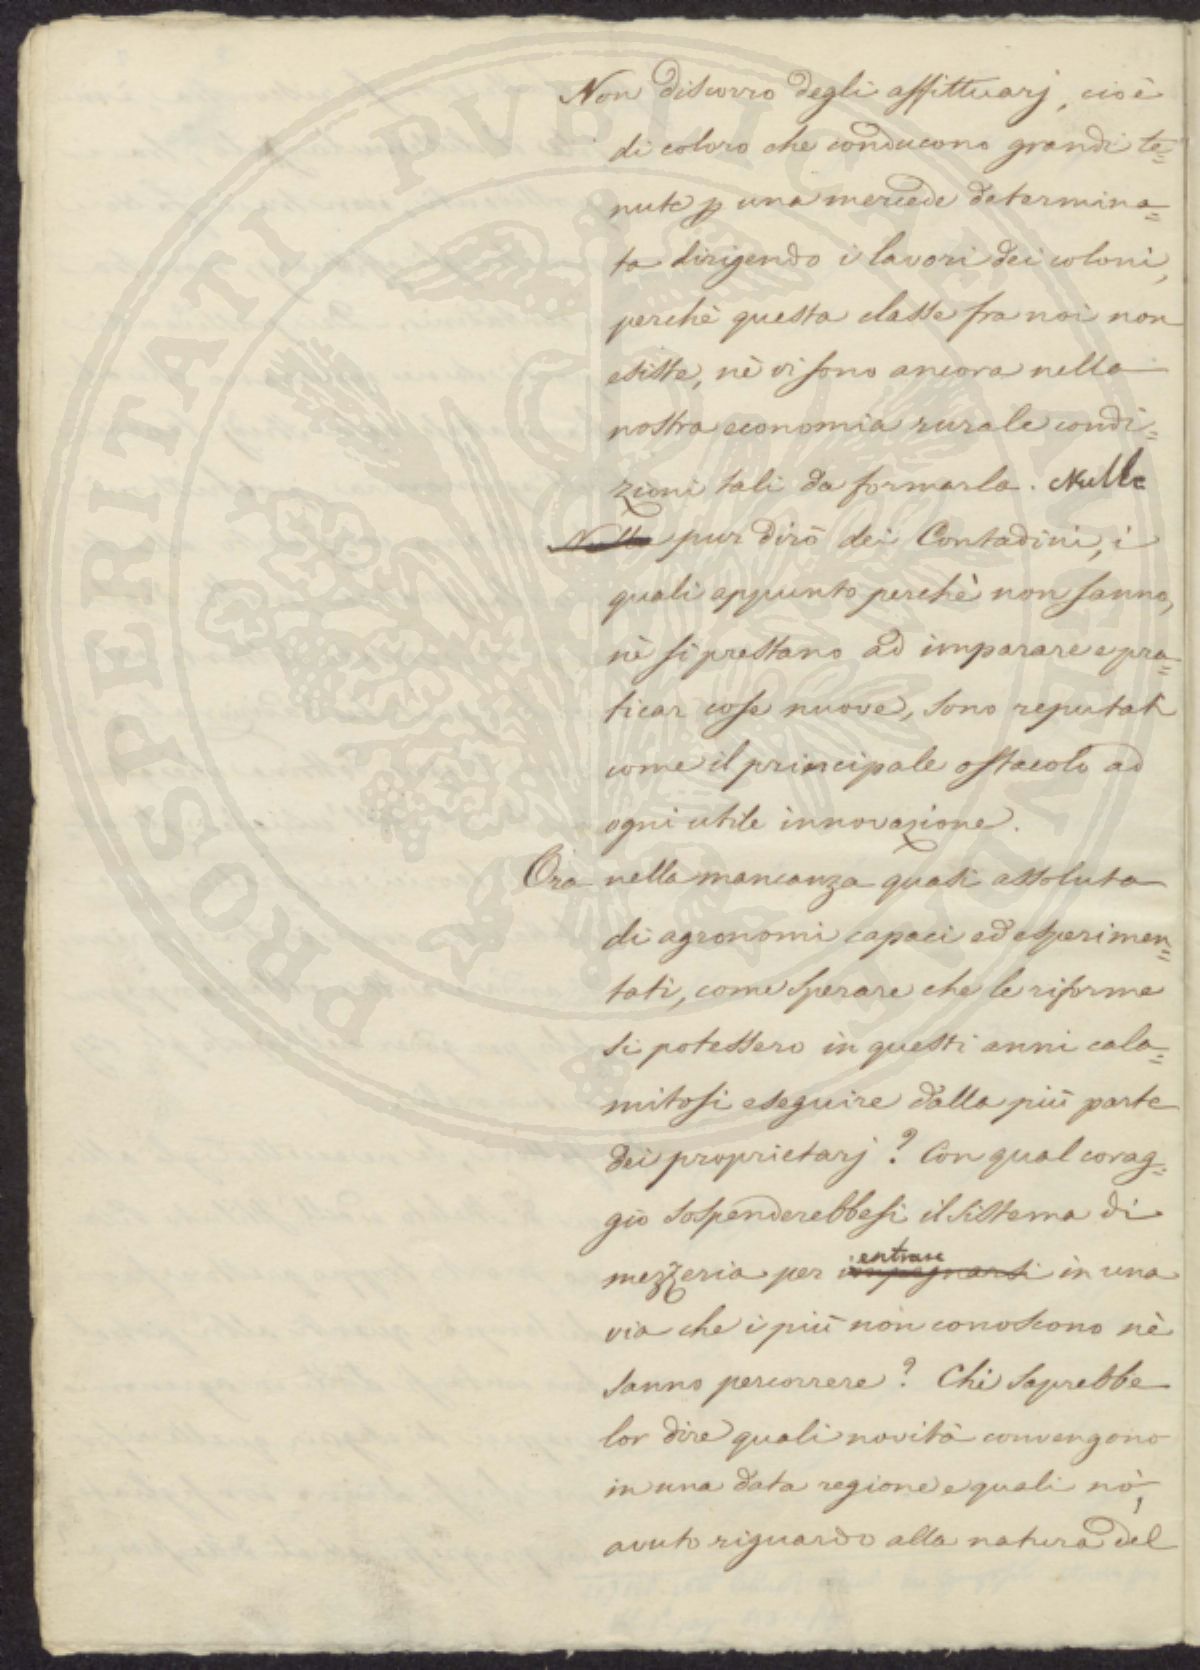 Non discorro degli affittuarj, cioè
di coloro che conducono grandi te=
nute p una mercede determina=
ta dirigendo i lavori dei coloni,
perchè questa classe fra noi non
esiste, nè vi sono ancora nella
nostra economia rurale condi=
zioni tali da formarla. Nulla
Nulla pur dirò dei Contadini, i
quali appunto perchè non sanno,
nè si prestano ad imparare e pra=
ticar cose nuove, sono reputati
come il principale ostacolo ad
ogni utile innovazione.
Ora nella mancanza quasi assoluta
di agronomi capaci ed esperimen=
tati, come sperare che le riforme
si potessero in questi anni cala=
mitosi eseguire dalla più parte
dei proprietarj? Con qual corag=
gio sospenderebbesi il sistema di
entrare
mezzeria per impegnarsi in una
via che i più non conoscono nè
sanno percorrere? Chi saprebbe
lor dire quali novità convengono
in una data regione e quali nò,
avuto riguardo alla natura del
PROSPERITATI PUBLICAE AUGENDAE